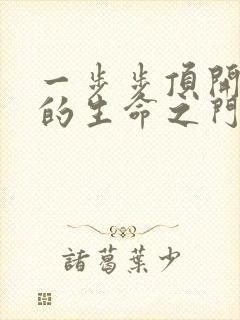 一步步頂開
的生命之門
諸葛葉少